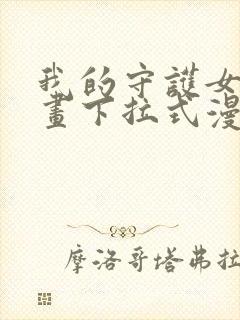 我的守護女
畫下拉式漫
摩洛哥塔弗拉